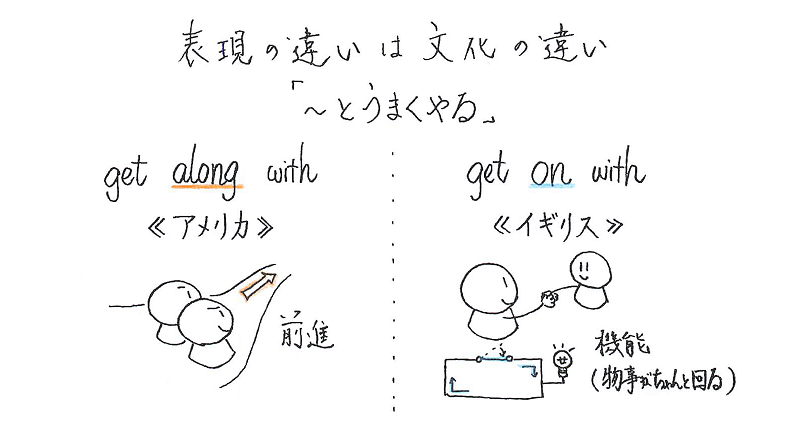 表現の違いは文化の違い
「～とうまくやる」
get along with
《アメリカ》
前進
get on with
《イギリス》
機能
(物事がちゃんと回る)